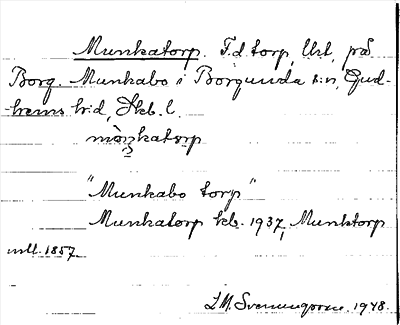 Munkatorp. F.d torp, Ukt, på
Borg. Munkabo i Borgunda sn, Gud-
hems hd, Skb. l.
mònkatorp
"Munkabo torp"
Munkatorp kb. 1937, Munktorp
1857
1948.